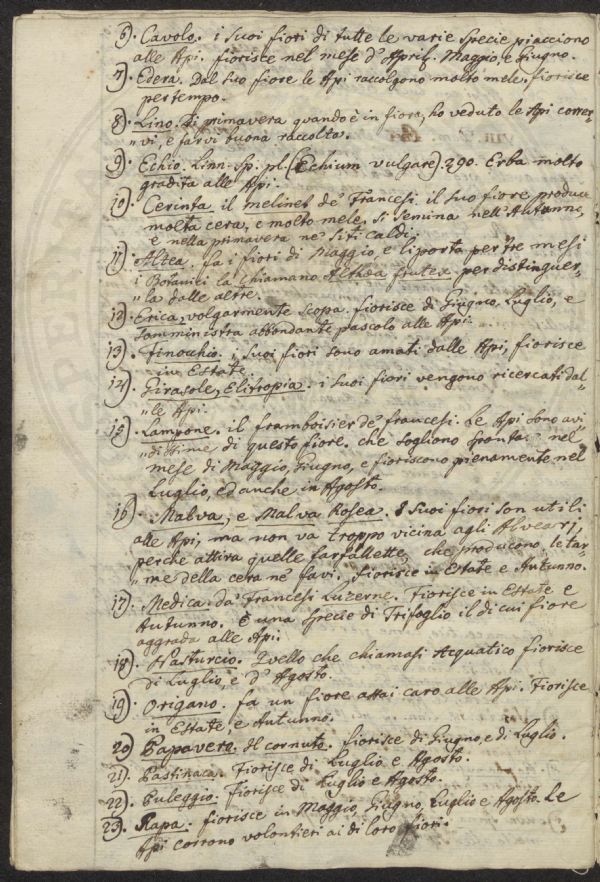 6). Cavolo. i suoi fiori di tutte le varie specie piacciono
alle Api. fiorisce nel mese d'April. Maggio, e Giugno.
7). Edera. Dal suo fiore le Api raccolgono molto mele. fiorisce
per tempo.
8). Lino. di primavera quando è in fiore, ho veduto le Api correr-
"vi, e farvi buona raccolta.
9). Echio. Linn. Sp. pl. (Echium vulgare). 290. Erba molto
gradita alle Api.
10). Cerinta il melinet de' Francesi. il suo fiore produce
molta cera, e molto mele, si semina nell'Autunno,
e nella primavera ne' siti caldi.
11). Altea. fa i fiori di Maggio, e li porta per tre mesi
i Botanici la chiamano Althæa frutex. per distinguer-
"la dalle altre.
12). Erica, volgarmente scopa. fiorisce di Giugno, Luglio, e
somministra abbondante pascolo alle Api.
13). Finocchio. i suoi fiori sono amati dalle Api, fiorisce
in Estate.
14). Girasole, Elitropia. i suoi fiori vengono ricercati dal-
"le Api.
15). Lampone. il framboisier de' francesi. Le Api sono avi
"dissime di questo fiore. che sogliono nel
mese di Maggio, Giugno, e fioriscono pienamente nel
Luglio, ed anche in Agosto.
16). Malva, e Malva Rosea. I suoi fiori son utili
alle Api, ma non va troppo vicina agli Alvearj,
perche attira quelle farfallette, che producono le tar-
"me della cera ne' favi. Fiorisce in Estate e Autunno.
17). Medica. da' Francesi Luzerne. Fiorisce in Estate e
Autunno. È una specie di Trifoglio il di cui fiore
aggrada alle Api.
18). Nasturcio. Quello che chiamasi Acquatico fiorisce
di Luglio, e d'Agosto.
19). Origano. fa un fiore assai caro alle Api. Fiorisce
in Estate, e Autunno.
20). Papavero. Il cornuto. fiorisce di Giugno, e di Luglio.
21). Pastinaca. Fiorisce di Luglio e Agosto.
22). Puleggio. Fiorisce di Luglio e Agosto.
23). Rapa. fiorisce in Maggio, Giugno, Luglio e Agosto. Le
Api corrono volontieri ai di loro fiori.